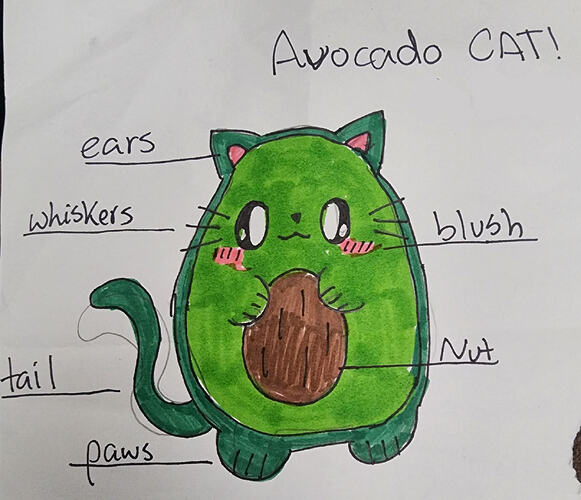 Avocado CAT!
ears
whiskers
blush
Nut
tail
paws